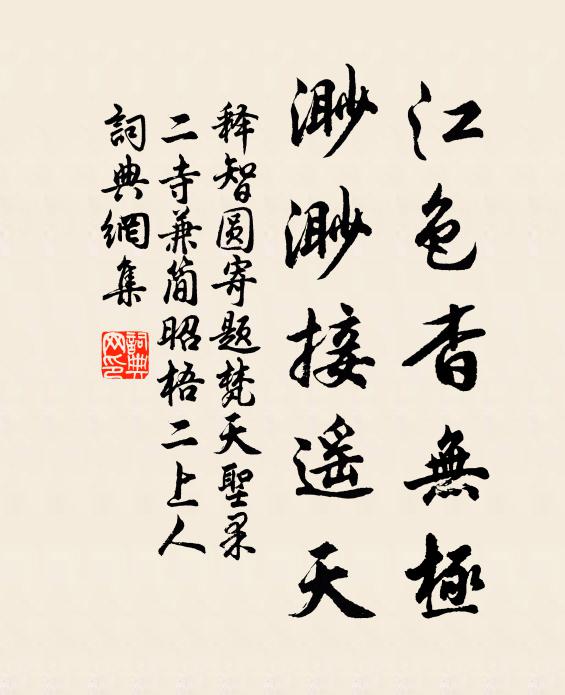 江色杳無極
渺渺接遥天
释智圆寄题梵天聖果
二寺兼简昭梧二上人
詞典網集
詞典网印